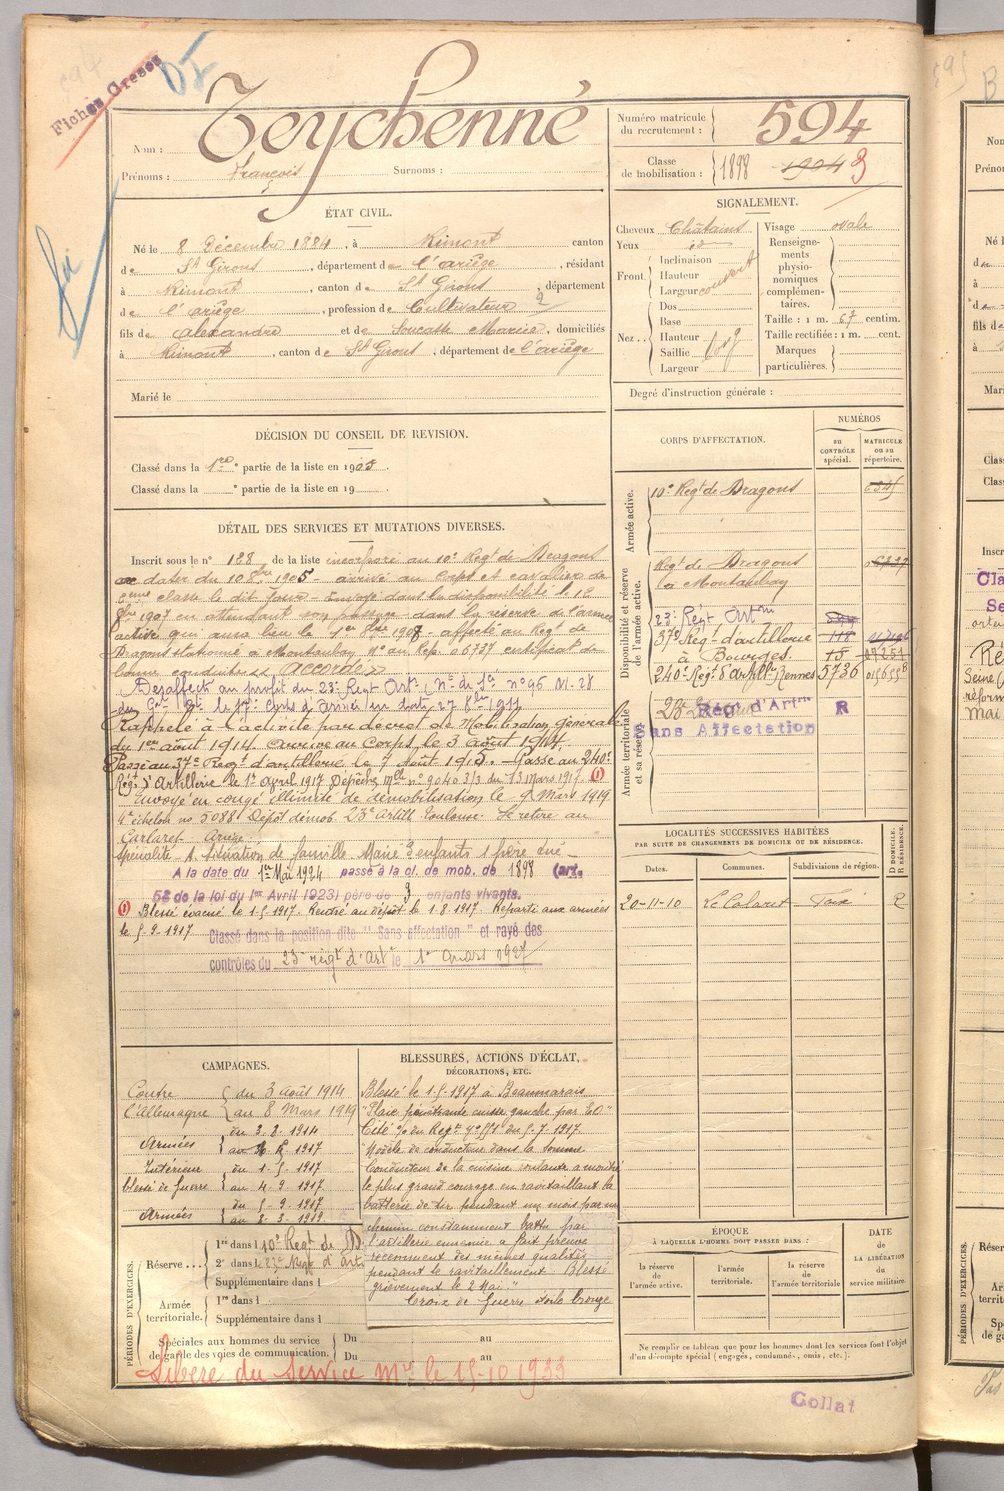 Fiches Créées
Teychenné
Nom :
Prénoms : François Surnoms :
Numéro matricule
du recrutement : 594
Classe
de mobilisation : 1898 1904
ÉTAT CIVIL.
Né le 8 Décembre 1884, à Rimont canton
de St Girons, département de l'ariège, résidant
à Rimont, canton de St Girons, département
de l'ariège, profession de Cultivateur 2
fils de Alexandre et de Soucasse Marie, domiciliés
à Rimont, canton de St Girons, département de l'ariège
Marié le
SIGNALEMENT.
Cheveux Châtains
Yeux id
Front. Inclinaison
Hauteur
Largeur couvert
Nez... Dos
Base
Hauteur
Saillie
Largeur
Visage ovale
Renseigne-
ments
physio-
nomiques
complémen-
taires.
Taille : 1 m. 67 centim.
Taille rectifiée : 1 m. cent.
Marques
particulières.
Degré d'instruction générale :
DÉCISION DU CONSEIL DE REVISION.
Classé dans la 1re partie de la liste en 1905.
Classé dans la e partie de la liste en 19 .
CORPS D'AFFECTATION.
NUMÉROS
au
CONTRÔLE
spécial.
MATRICULE
ou au
répertoire.
Armée active.
10e Regt de Dragons
Disponibilité et réserve
de l'armée active.
Regt de Dragons
à Montauban 06737
23e Régt Artie
37e Regt d'artillerie 118
à Bourges 15
240e Regt d'artillie Rennes 5736
Armée territoriale
et sa réserve.
23e Régt d'Artie R
Sans Affectation
DÉTAIL DES SERVICES ET MUTATIONS DIVERSES.
Inscrit sous le n° 128 de la liste incorporé au 10e Regt de Dragons
à dater du 10 8bre 1905 - arrivé au Corps et cavalier de
2eme classe le dit jour - Envoyé dans la disponibilité le 12
8bre 1907 en attendant son passage dans la réserve de l'armée
active qui aura lieu le 1er 8bre 1908 - affecté au Regt de
Dragons stationné à Montauban No au Rép. 06737 certificat de
bonne conduite "accordé"
Désaffecté au profit du 23e Regt Artie
Rappelé à l'activité par décret de Mobilisation Générale
du 1er août 1914. Arrivé au Corps le 3 août 1914.
Passé au 37e Regt d'artillerie le 7 août 1915. - Passé au 240e
Regt d'Artillerie le 1r Avril 1917 Dépêche mlle no 9040 3/3 du 13 mars 1917 (1)
Envoyé en congé illimité de démobilisation le 9 Mars 1919
4e échelon no 5088 Dépôt démob. 23e Artill. Toulouse. Se retire au
Carlaret Ariège.
Spécialité - A. Situation de famille Marié 3 enfants 1 frère tué
A la date du 1er Mai 1924 passé à la cl. de mob. de 1898 (art.
58 de la loi du 1er Avril 1923) père de 3 enfants vivants.
(1) Blessé évacué le 1.5.1917. Rentré au dépôt le 1.8.1917. Reparti aux armées
le 5.9.1917 Classé dans la position dite "Sans affectation" et rayé des
contrôles du 23e régt d'art le 1er mars 1927
LOCALITÉS SUCCESSIVES HABITÉES
PAR SUITE DE CHANGEMENTS DE DOMICILE OU DE RÉSIDENCE.
Dates. Communes. Subdivisions de région. D DOMICILE. R RÉSIDENCE.
20-11-10 Le Calaret Foix R
CAMPAGNES.
Contre du 3 août 1914
l'Allemagne au 8 Mars 1919
Armées du 3.8.1914
au 1917
Intérieur du 1.5.1917
blessé de Guerre au 4.9.1917
Armées du 5.9.1917
au 8.3.1919
BLESSURES, ACTIONS D'ÉCLAT,
DÉCORATIONS, ETC.
Blessé le 1.5.1917 à Beaumarais
"Plaie pénétrante cuisse gauche par EO"
Cité O/ du Regt du 5.7.1917
"Modèle de conducteur dans la Somme
Conducteur de la cuisine roulante a montré
le plus grand courage en ravitaillant la
batterie de tir pendant un mois par un
chemin constamment battu par
l'artillerie ennemie a fait preuve
récemment des mêmes qualités
pendant le ravitaillement. Blessé
grièvement le 2 Mai."
Croix de Guerre étoile bronze
PÉRIODES D'EXERCICES.
Réserve.... 1re dans l 10e Regt de D
2e dans le 23e Regt d'Arti
Supplémentaire dans l
Armée
territoriale. 1re dans l
Supplémentaire dans l
Spéciales aux hommes du service
de garde des voies de communication. Du au
Du au
Libéré du service Mre le 15-10 1933
ÉPOQUE
À LAQUELLE L'HOMME DOIT PASSER DANS :
la réserve
de
l'armée active.
l'armée
territoriale.
la réserve
de
l'armée territoriale
DATE
de
LA LIBÉRATION
du
service militaire.
Ne remplir ce tableau que pour les hommes dont les services font l'objet
d'un décompte spécial (engagés, condamnés, omis, etc.).
Collat